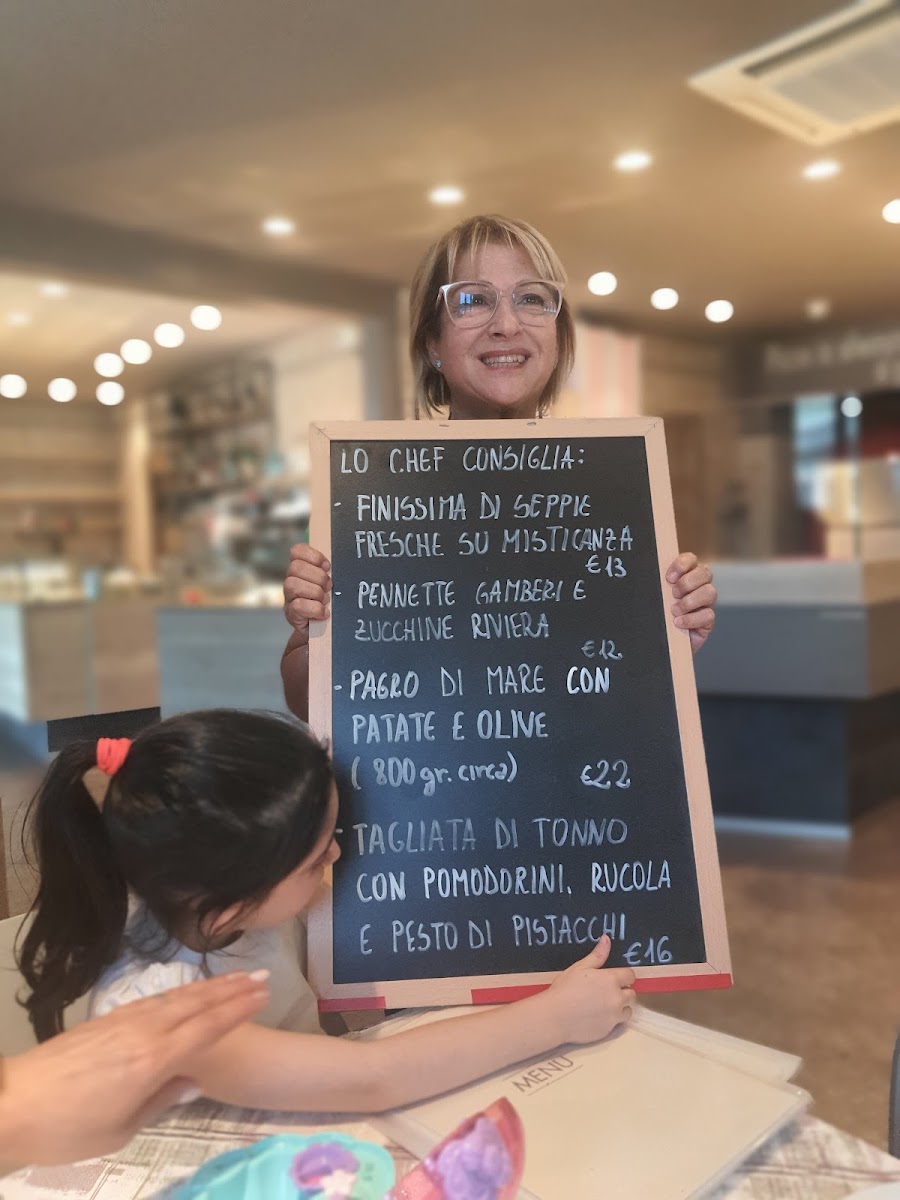 LO CHEF CONSIGLIA:
- FINISSIMA DI SEPPIE
FRESCHE SU MISTICANZA
€13
- PENNETTE GAMBERI E
ZUCCHINE RIVIERA
€12
- PAGRO DI MARE CON
PATATE E OLIVE
(800gr. circa) €22
- TAGLIATA DI TONNO
CON POMODORINI, RUCOLA
E PESTO DI PISTACCHI
€16
MENU